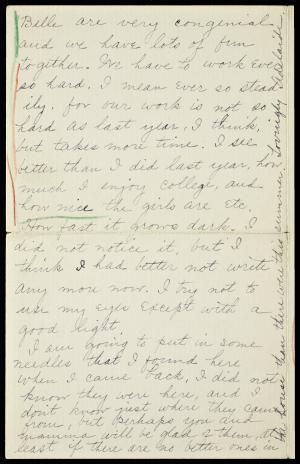 Belle are very congenial
and we have lots of fun
together. We have to work ever
so hard. I mean ever so stead
ily. for our work is not so
hard as last year, I think,
but takes more time. I see
better than I did last year, how
much I enjoy college, and
how nice the girls are etc.
How fast it grows dark. I
did not notice it, but I
think I had better not write
any more now. I try not to
use my eyes except with a
good light.
I am going to put in some
needles that I found here
when I came back, I did not
know they were here, and I
don't know just where they came
from, but perhaps you and
mamma will be glad of them, at
least if there are no better ones in
the house than there were this summer. Lovingly Adelaide